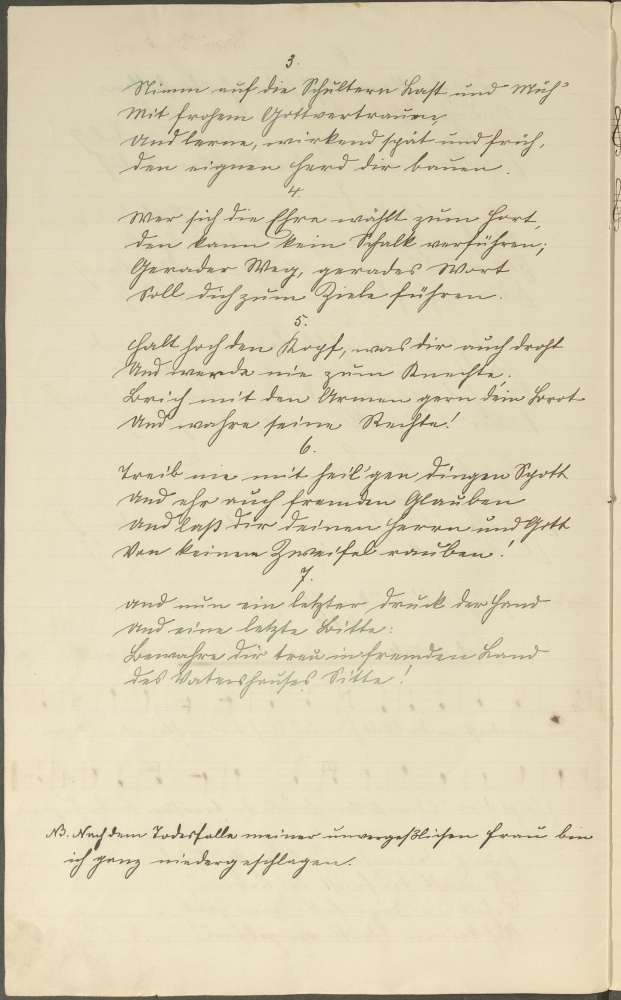 3.
Nimm auf die Schultern Last und Müh'
Mit frohem Gottvertrauen
Und lerne, wirkend spät und früh,
den eignen Herd dir bauen.
4.
Wer sich die Ehre wählt zum Hort,
den kann kein Schalk verführen;
Gerader Weg, gerades Wort
Soll dich zum Ziele führen.
5.
Halt hoch den Kopf, was dir auch droht
Und werde nie zum Knechte.
Brich mit den Armen gern dein Brot
Und wahre seine Rechte!
6.
Treib nie mit heil'gen Dingen Spott
Und ehr auch fremden Glauben
Und laß dir deinen Herrn und Gott
Von keinem Zweifel rauben!
7.
Und nun ein letzter Druck der Hand
Und eine letzte Bitte:
Bewahre dir treu im fremden Land
des Vaterhauses Sitte!
NB. Nach dem Todesfalle meiner unvergeßlichen Frau bin
ich ganz niedergeschlagen.